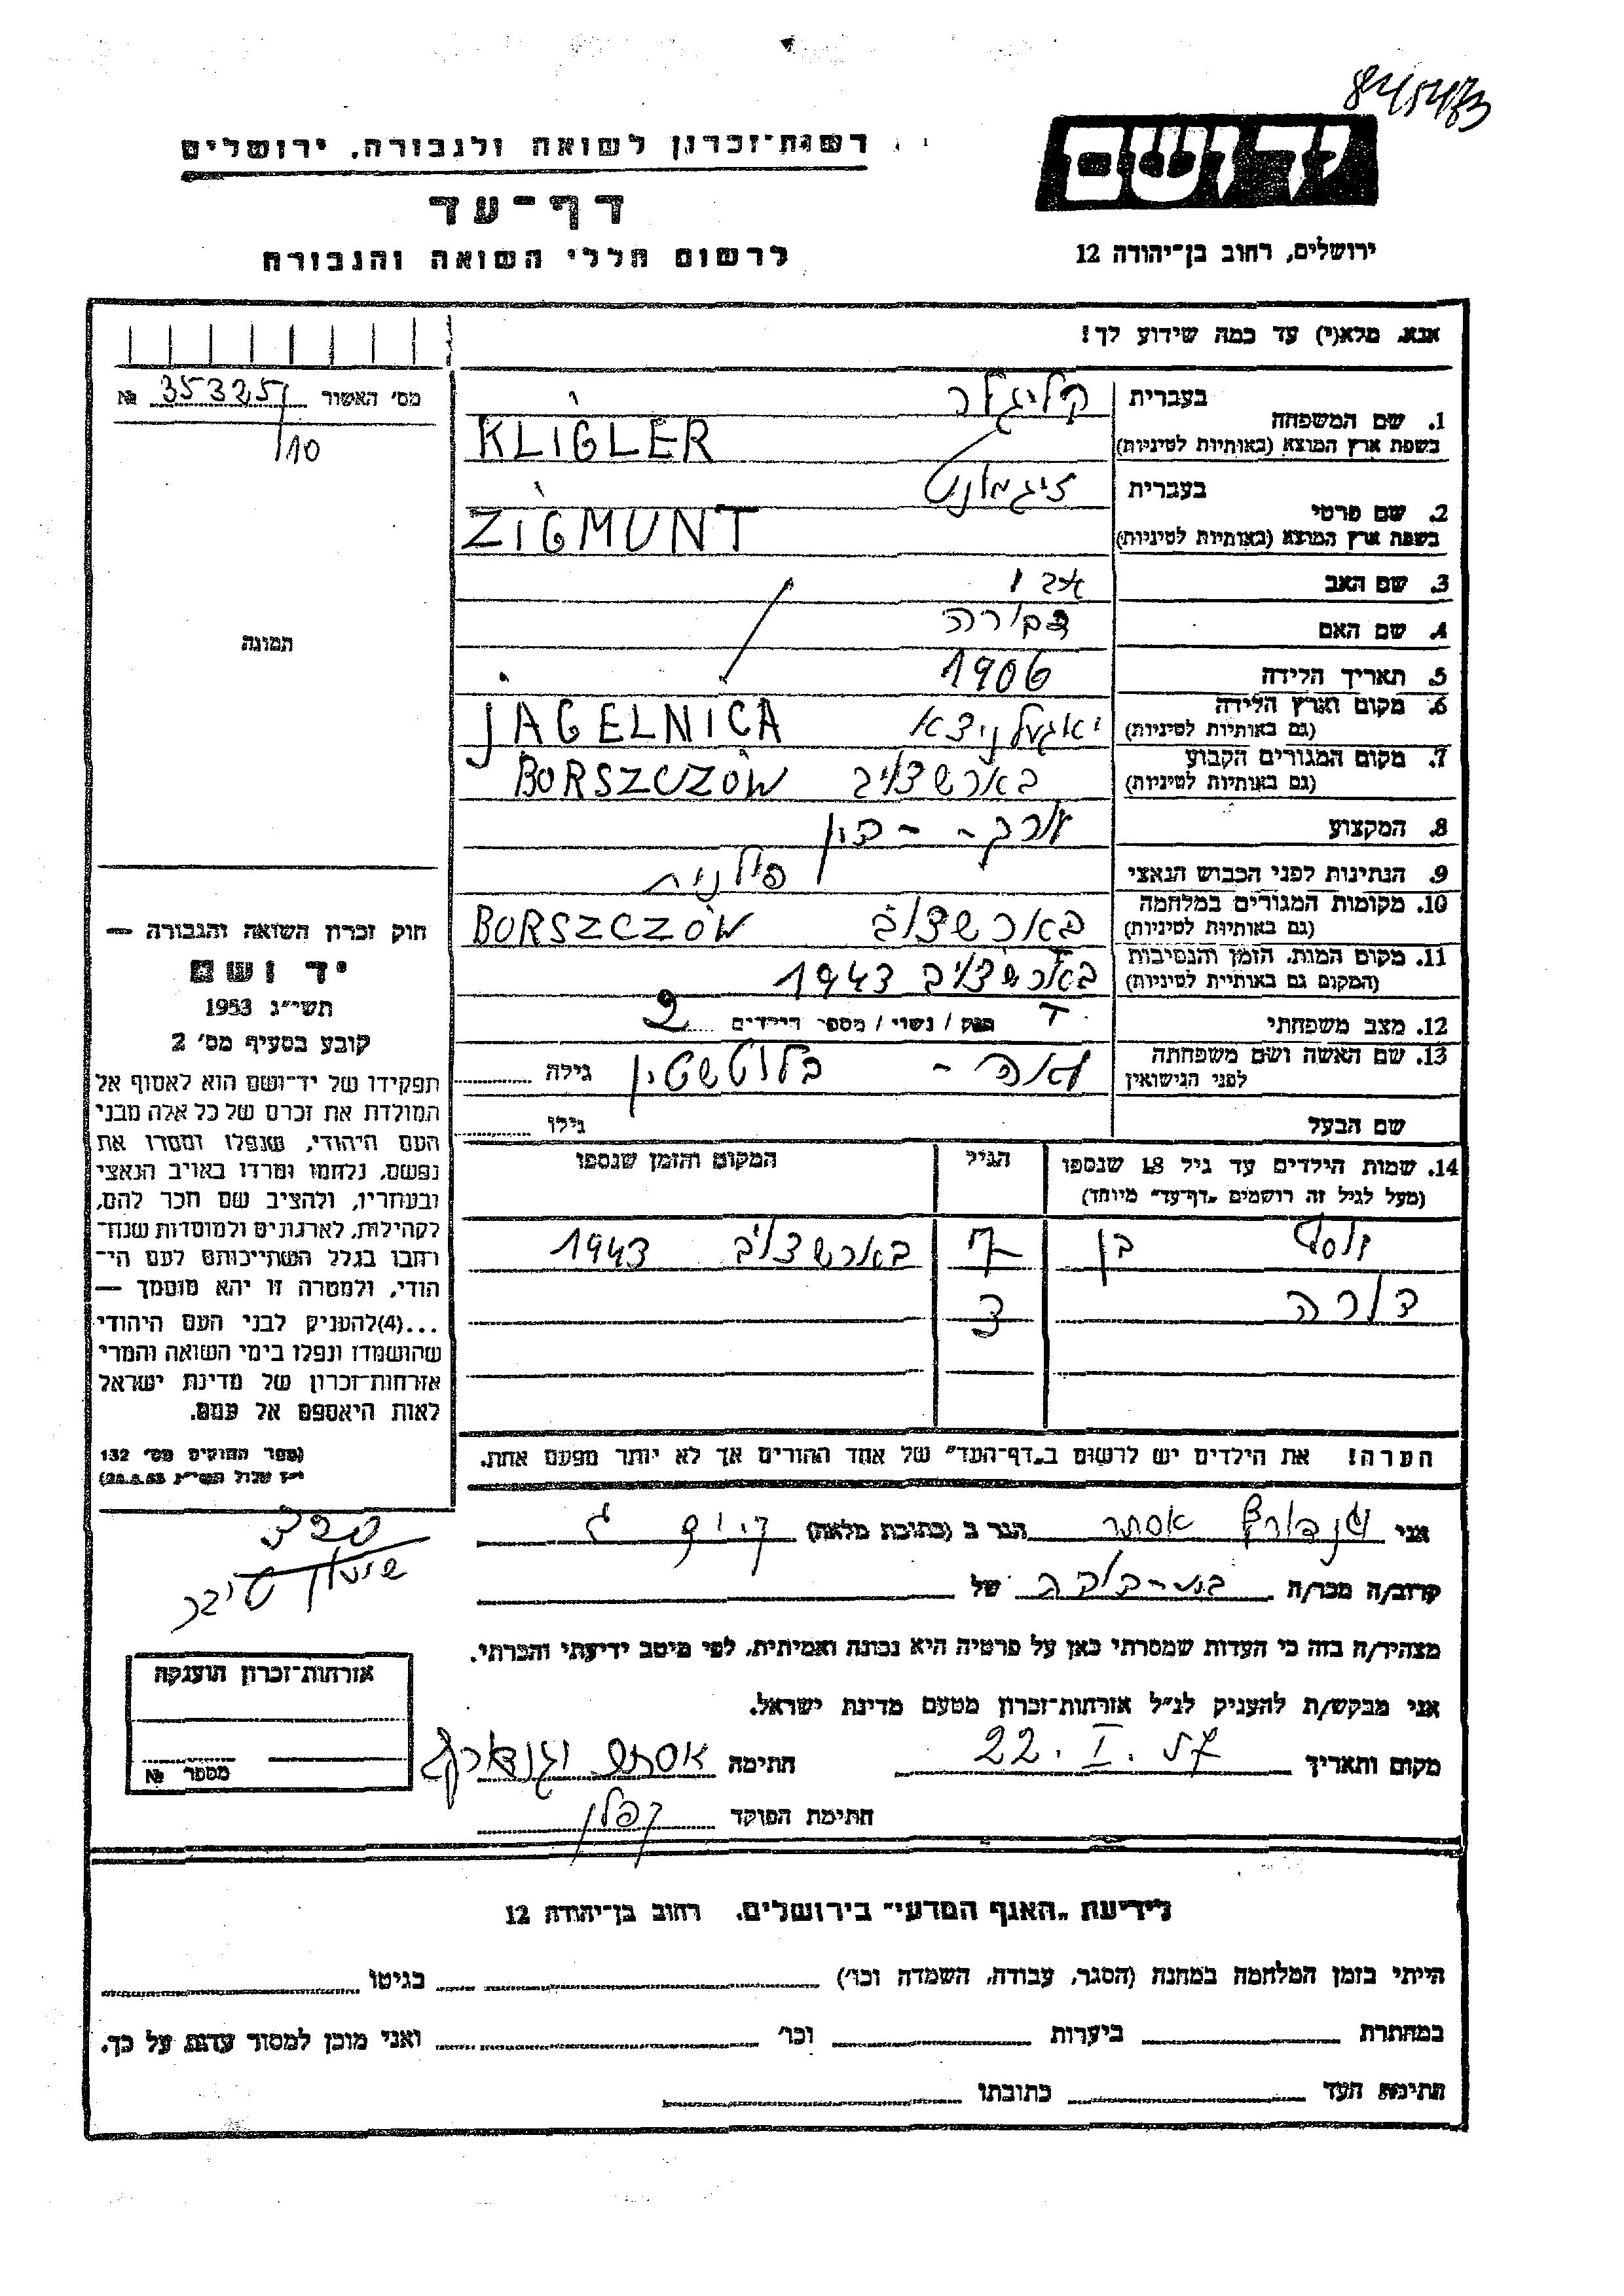 רשות־זכרון לשואה ולגבורה, ירושלים
דף־עד
לרשום חללי השואה והגבורה
יד ושם
ירושלים, רחוב בן־יהודה 12
אנא, מלא(י) עד כמה שידוע לך!
מס' האשור 35325 №
/10
1. שם המשפחה
בעברית קליגלר
בשפת ארץ המוצא (באותיות לטיניות) KLIGLER
2. שם פרטי
בעברית זיגמונט
בשפת ארץ המוצא (באותיות לטיניות) ZIGMUNT
3. שם האב
4. שם האם דבורה
5. תאריך הלידה 1906
6. מקום וארץ הלידה יאגעלניצא JAGELNICA
(גם באותיות לטיניות)
7. מקום המגורים הקבוע בארשצ'וב BORSZCZÓW
(גם באותיות לטיניות)
8. המקצוע עורך-דין
9. הנתינות לפני הכבוש הנאצי פולנית
10. מקומות המגורים במלחמה בארשצ'וב BORSZCZÓW
(גם באותיות לטיניות)
11. מקום המות, הזמן והנסיבות בארשצ'וב 1943
(המקום גם באותיות לטיניות)
12. מצב משפחתי רווק / נשוי / מספר הילדים 2
13. שם האשה ושם משפחתה
לפני הנישואין גילה
שם הבעל גילו
14. שמות הילדים עד גיל 18 שנספו
(מעל לגיל זה רושמים „דף־עד” מיוחד)
הגיל
המקום והזמן שנספו
יוסף בן 7 בארשצ'וב 1943
דורה 3
הערה! את הילדים יש לרשום ב„דף־העד” של אחד ההורים אך לא יותר מפעם אחת.
תמונה
חוק זכרון השואה והגבורה —
יד ושם
תשי״ג 1953
קובע בסעיף מס' 2
תפקידו של יד־ושם הוא לאסוף אל
המולדת את זכרם של כל אלה מבני
העם היהודי, שנפלו ומסרו את
נפשם, נלחמו ומרדו באויב הנאצי
ובעוזריו, ולהציב שם וזכר להם,
לקהילות, לארגונים ולמוסדות שנח־
רבו בגלל השתייכותם לעם הי־
הודי, ולמטרה זו יהא מוסמך —
...(4)להעניק לבני העם היהודי
שהושמדו ונפלו בימי השואה והמרי
אזרחות־זכרון של מדינת ישראל
לאות היאספם אל עמם.
(ספר החוקים מס' 132
י״ז אלול תשי״ג 28.8.53)
אני אסתר הגר ב (כתובת מלאה)
קרוב/ה מכר/ה בת-דודה של
מצהיר/ה בזה כי העדות שמסרתי כאן על פרטיה היא נכונה ואמיתית, לפי מיטב ידיעתי והכרתי.
אני מבקש/ת להעניק לנ״ל אזרחות־זכרון מטעם מדינת ישראל.
מקום ותאריך 22. I. 57 חתימה אסתר
חתימת הפוקד קפלן
אזרחות־זכרון הוענקה
מספר №
לידיעת „האגף המדעי” בירושלים, רחוב בן־יהודה 12
הייתי בזמן המלחמה במחנה (הסגר, עבודה, השמדה וכו') בגיטו
במחתרת ביערות וכו' ואני מוכן למסור עדות על כך.
חתימת העד כתובתו